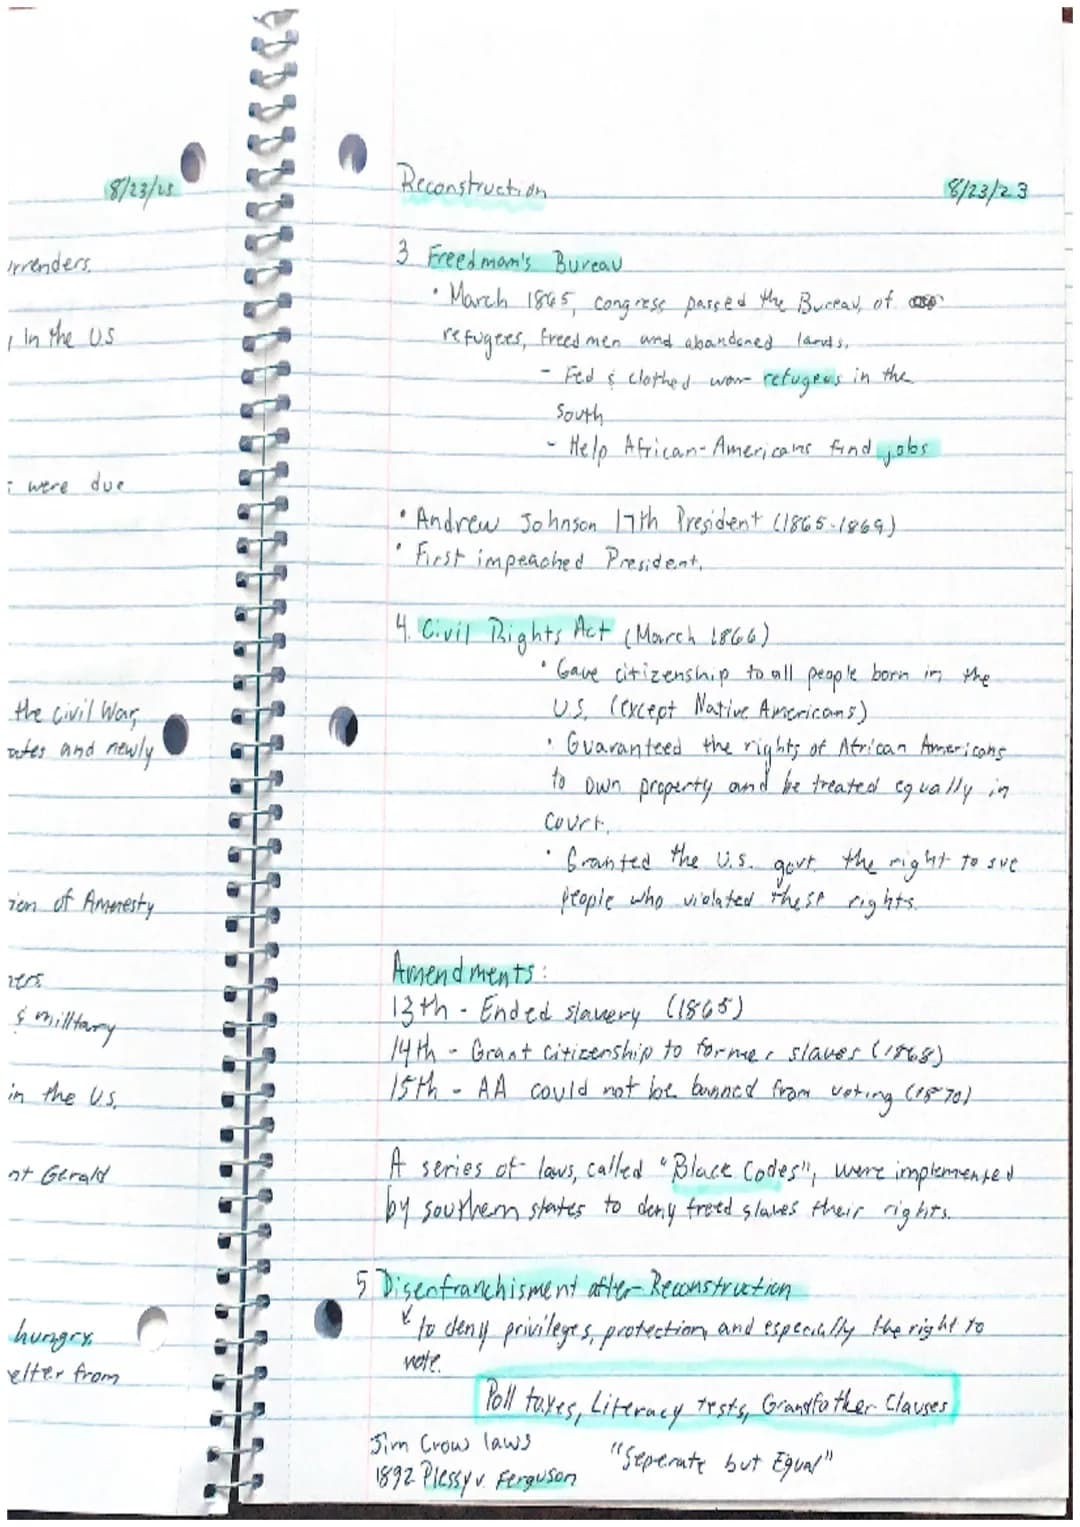 8/23/23
urrenders.
, In the U.S
s were due
the Civil War,
ates and newly
ion of Amnesty
ners
& milltary
in the U.S.
nt Gerald
hungry,
elter from
Reconstruction 8/23/23
3 Freedmom's Bureau
• March 1865, congress passed the Bureau, of
refugees, freedmen and abandoned lands.
- Fed & clothed war refugees in the
South
- Help African-Americans find jobs
• Andrew Johnson 17th President (1865-1869)
• First impeached President.
4. Civil Rights Act (March 1866)
• Gave citizenship to all people born in the
U.S. (except Native Americans)
• Guaranteed the rights of African Americans
to own property and be treated equally in
court.
• Granted the U.S. govt. the right to sue
people who violated these rights.
Amendments:
13th - Ended slavery (1865)
14th - Grant citizenship to former slaves (1868)
15th - AA could not be banned from voting (1870)
A series of laws, called "Black Codes", were implemented
by southern states to deny freed slaves their rights.
5 Disenfranchisment after Reconstruction
to deny privileges, protection, and especially the right to
vote.
Poll taxes, Literacy tests, Grandfather Clauses
Jim Crow laws "Seperate but Equal"
1892 Plessy v. Ferguson